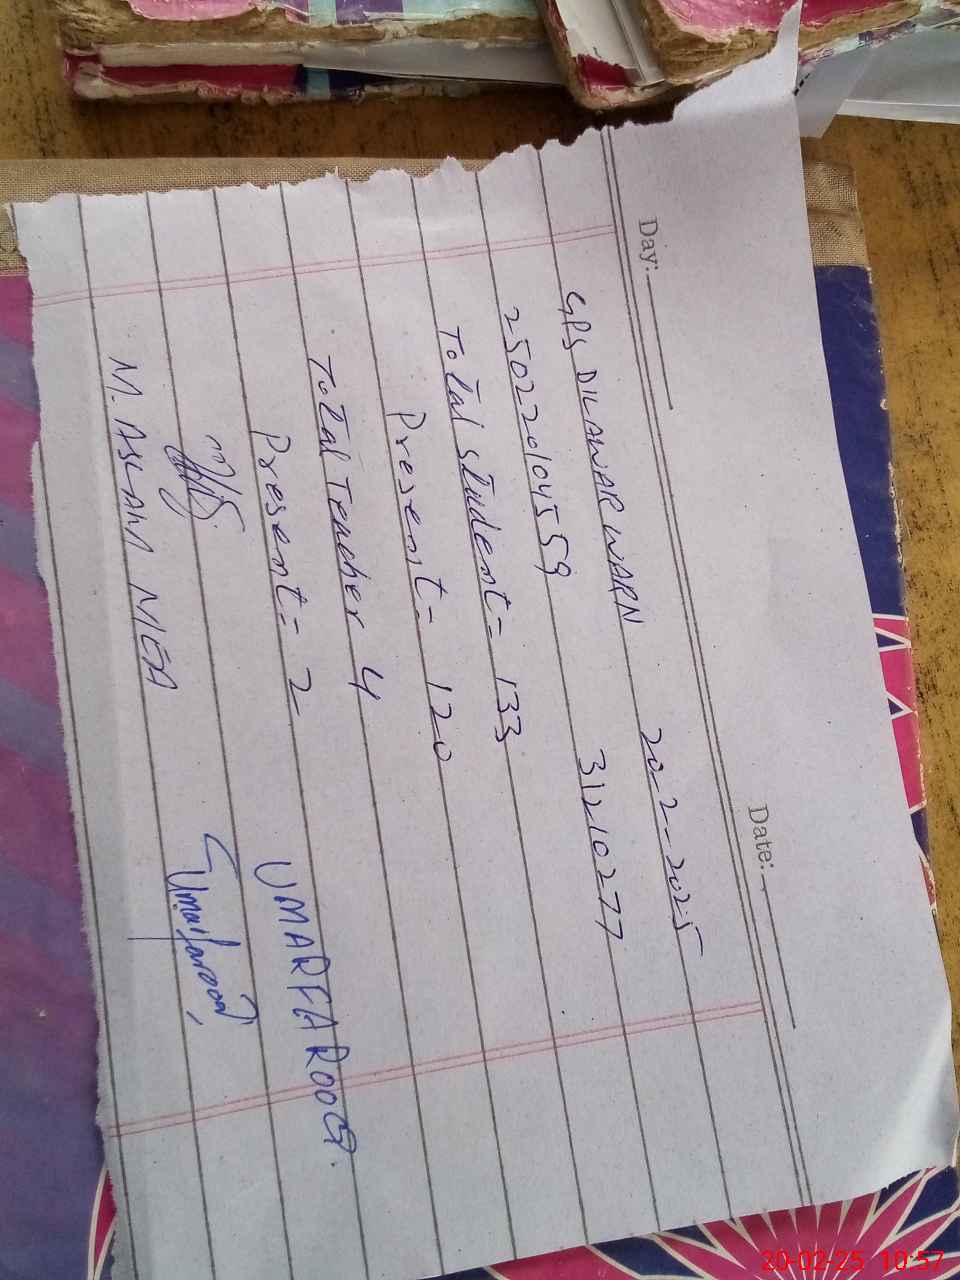 Day:
Date:
GPS DILAWAR WARN 20-2-2025
250220104559 31210277
Total student = 133
Present - 120
Total Teacher 4
Present = 2
UMARFAROOQ
Umarfarooq
M. ASLAM MEA
20-02-25 10:57